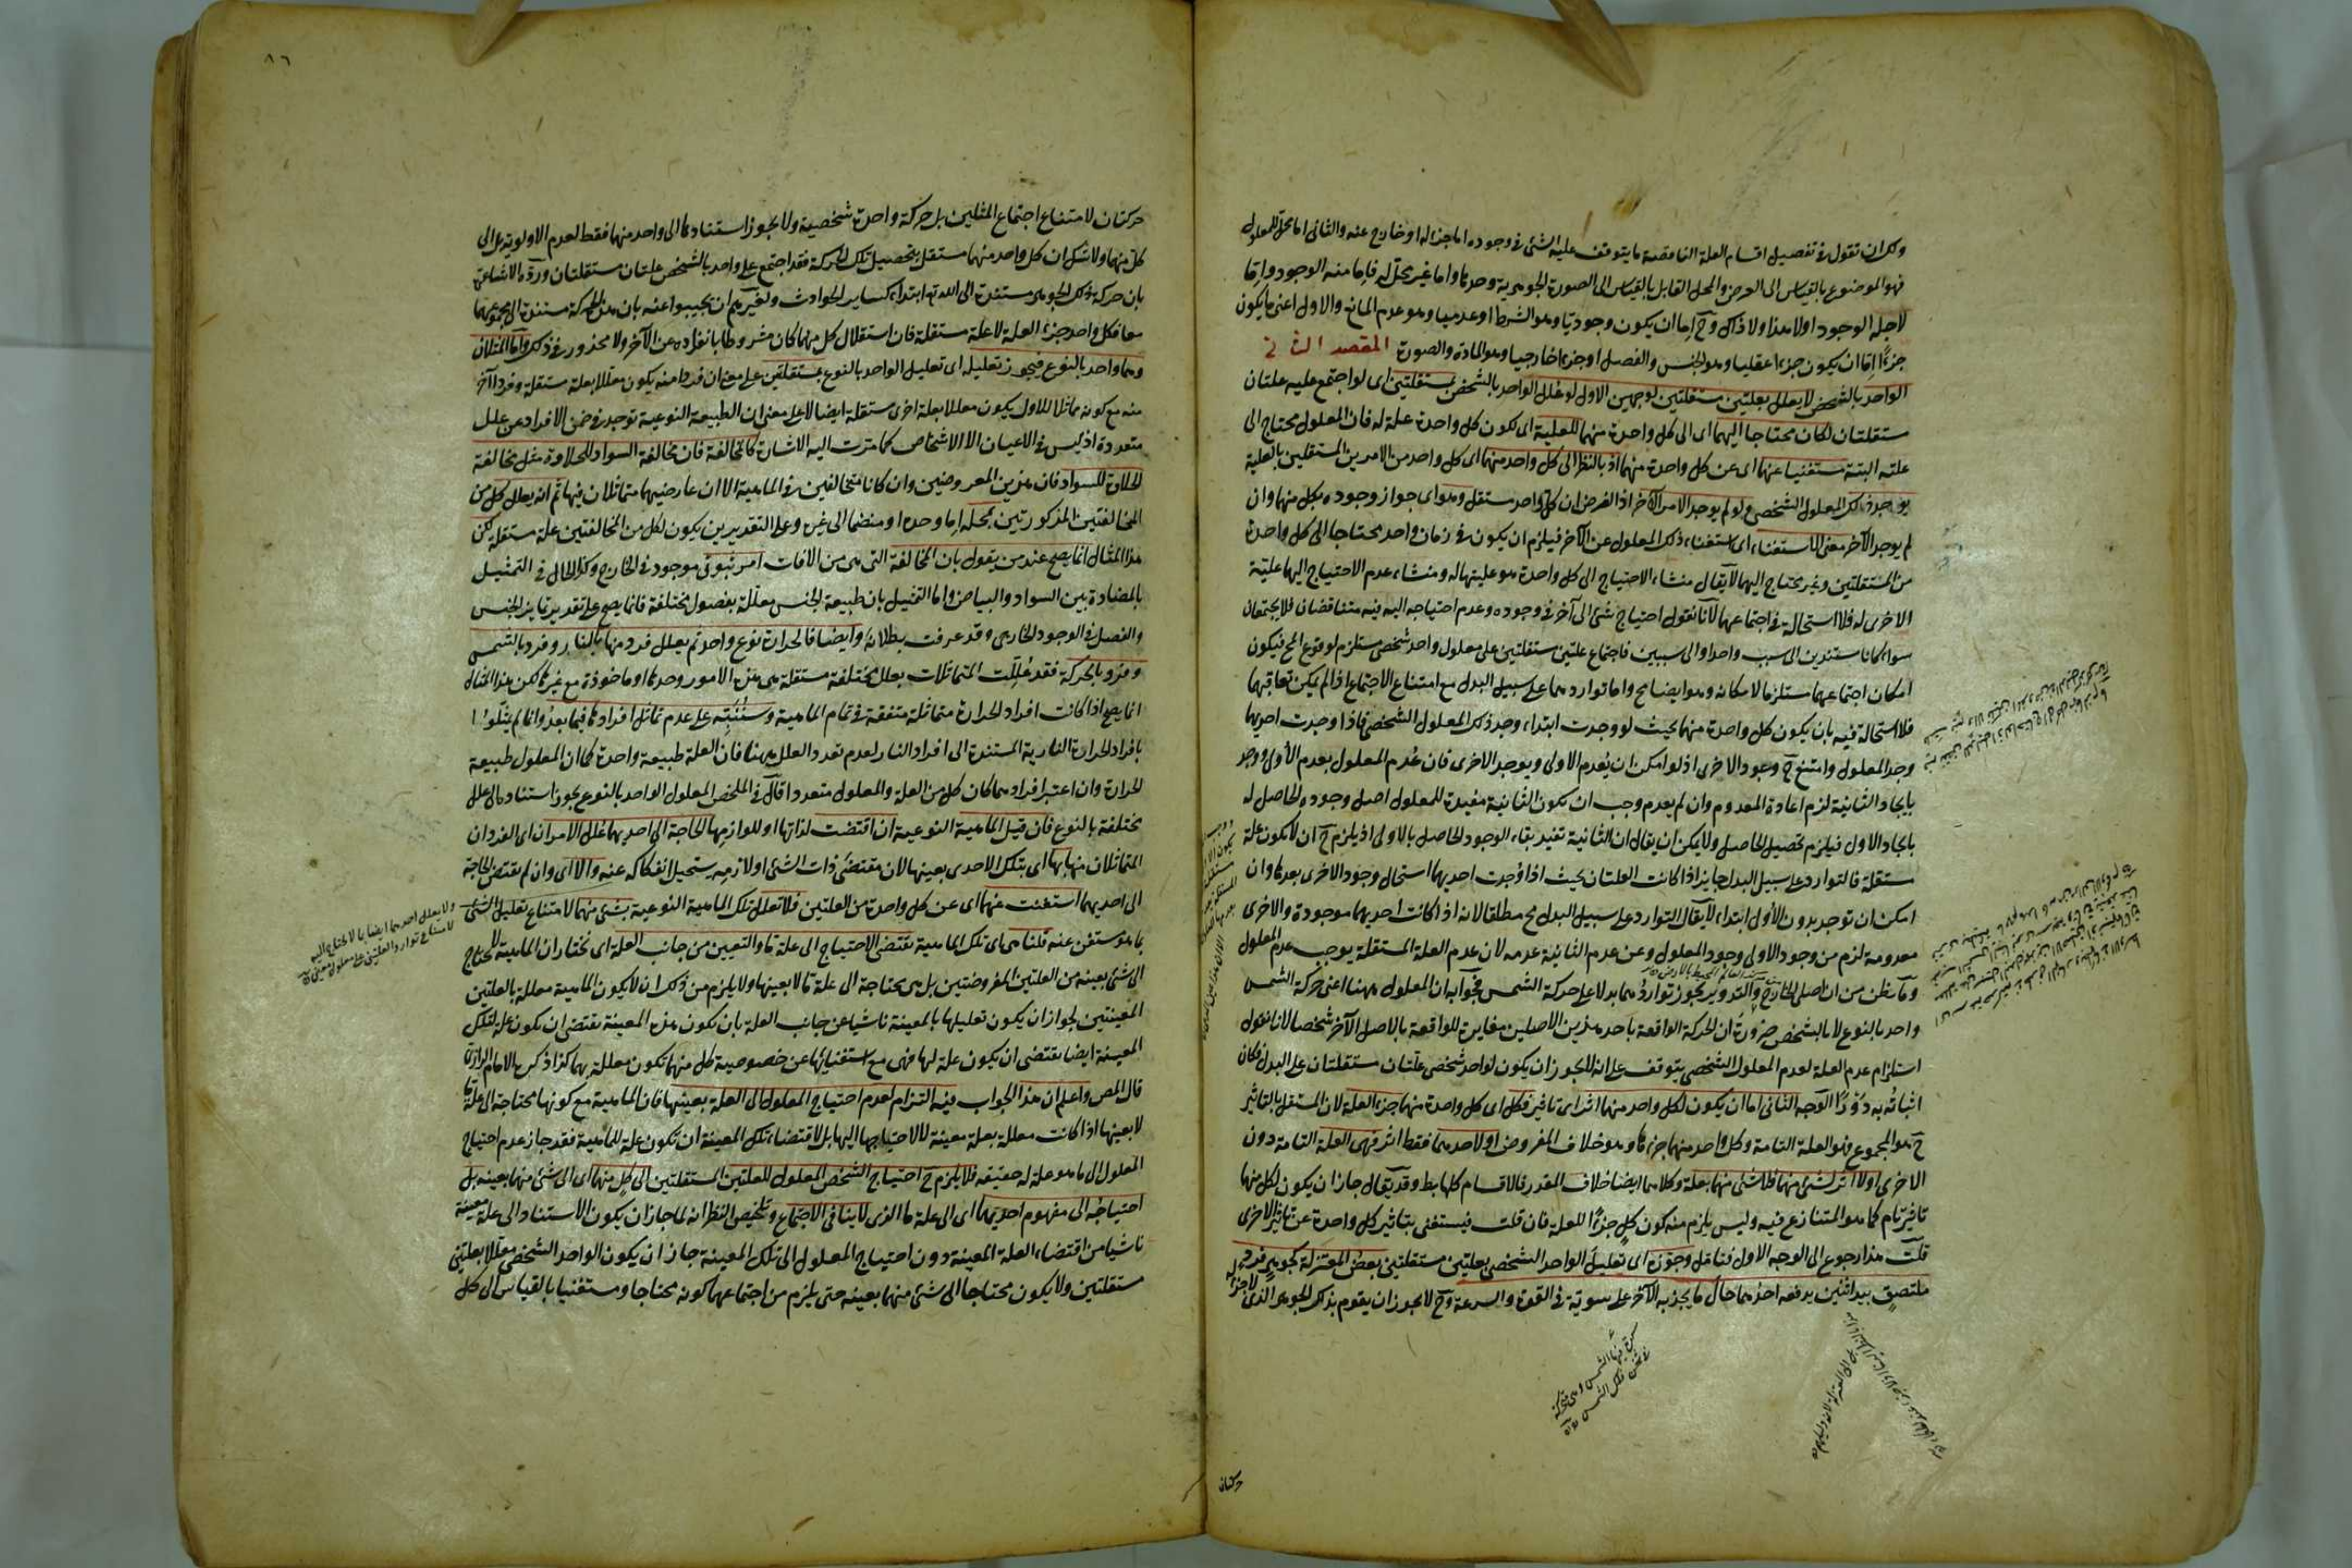 ولك ان تقول في تفصيل اقسام العلة الناقصة ما يتوقف عليه الشئ في وجوده اما جزء له او خارج عنه والثاني اما محل للمعلول
فهو الموضوع بالقياس الى العرض والمحل القابل بالقياس الى الصورة الجوهرية وحدها واما غير محل له فاما ما منه الوجود واما
لاجله الوجود اولا هذا ولا ذاك وح اما ان يكون وجوديا وهو الشرط او عدميا وهو عدم المانع والاول اعني ما يكون
جزءا اما ان يكون جزءا عقليا وهو الجنس والفصل او جزءا خارجيا وهو المادة والصورة المقصد الثاني
الواحد بالشخص لا يعلل بعلتين مستقلتين لوجهين الاول لو علل الواحد بالشخص بمستقلتين اى لو اجتمع عليه علتان
مستقلتان لكان محتاجا اليهما اى الى كل واحدة منهما للعلية اى لكون كل واحدة علة له فان المعلول محتاج الى
علته البتة مستغنيا عنهما اى عن كل واحدة منهما اذ بالنظر الى كل واحد منهما اى كل واحد من الامرين المستقلين بالعلية
يوجد ذلك المعلول الشخصى ولو لم يوجد الامر الآخر اذ الفرض ان كل واحد مستقل وهو اى جواز وجوده بكل منهما وان
لم يوجد الآخر معنى الاستغناء اى استغناء ذلك المعلول عن الآخر فيلزم ان يكون في زمان واحد محتاجا الى كل واحدة
من المستقلتين وغير محتاج اليهما لا يقال منشاء الاحتياج الى كل واحدة هو عليتها له ومنشاء عدم الاحتياج اليها علية
الاخرى له فلا استحالة في اجتماعهما لانا نقول احتياج شئ الى آخر في وجوده وعدم احتياجه اليه فيه متناقضان فلا يجتمعان
سواء كانا مستندين الى سبب واحد او الى سببين فاجتماع علتين مستقلتين على معلول واحد شخصى مستلزم لوقوع المح فيكون
امكان اجتماعهما مستلزما لامكانه وهو ايضا مح واما تواردهما على سبيل البدل مع امتناع الاجتماع اذا لم يكن تعاقبهما
فلا استحالة فيه بان يكون كل واحدة منهما بحيث لو وجدت ابتداء وجد ذلك المعلول الشخصى فاذا وجدت احديهما
وجد المعلول وامتنع ح وجود الاخرى اذ لو امكن ان يعدم الاولى ويوجد الاخرى فان عدم المعلول بعدم الأولى ووجد
بايجاد الثانية لزم اعادة المعدوم وان لم يعدم وجب ان تكون الثانية مفيدة للمعلول اصل وجوده الحاصل له
بايجاد الاول فيلزم تحصيل الحاصل ولا يمكن ان يقال ان الثانية تفيد بقاء الوجود الحاصل بالاولى اذ يلزم ح ان لا تكون علة
مستقلة فالتوارد على سبيل البدل جايز اذا كانت العلتان بحيث اذا وجدت احديهما استحال وجود الاخرى بعدها وان
امكن ان توجد بدون الأولى ابتداء لا يقال التوارد على سبيل البدل مح مطلقا لانه اذا كانت احديهما موجودة والاخرى
معدومة لزم من وجود الاولى وجود المعلول وعن عدم الثانية عدمه لان عدم العلة المستقلة يوجب عدم المعلول
وما يظن من ان اصلى الخارج والتدوير يجوز تواردهما بدلا على حركة الشمس فجوابه ان المعلول ههنا اعنى حركة الشمس
واحد بالنوع لا بالشخص ضرورة ان الحركة الواقعة باحد هذين الاصلين مغايرة للواقعة بالاصل الآخر شخصا لانا نقول
استلزام عدم العلة لعدم المعلول الشخصى يتوقف على انه لا يجوز ان يكون لواحد شخصى علتان مستقلتان على البدل فكان
اثباته به دورا الوجه الثانى اما ان يكون لكل واحد منهما اثر اى تاثير فكل اى كل واحدة منهما جزء العلة لان المستقل بالتاثير
ح هو المجموع فهو العلة التامة وكل واحد منهما جزءها وهو خلاف المفروض او لاحدهما فقط اثر فهى العلة التامة دون
الاخرى اولا اثر لشئ منهما فلا شئ منهما بعلة وكلاهما ايضا خلاف المقدر فالاقسام كلها بط وقد يقال جاز ان يكون لكل منهما
تاثير تام كما هو المتنازع فيه وليس يلزم منه كون كل جزءا للعلة فان قلت فيستغنى بتاثير كل واحدة عن تاثير الاخرى
قلت هذا رجوع الى الوجه الاول فتامل وجوزه اى تعليل الواحد الشخصى بعلتين مستقلتين بعض المعتزلة كجوهر فرد
ملتصق بيد اثنين يدفعه احدهما حال ما يجذبه الآخر على سوية في القوة والسرعة وح لا يجوز ان يقوم بذلك الجوهر الذى لا جزء له
حركتان
حركتان لامتناع اجتماع المثلين بل حركة واحدة شخصية ولا يجوز استنادها الى واحد منهما فقط لعدم الاولوية بل الى
كل منهما ولا شك ان كل واحد منهما مستقل بتحصيل تلك الحركة فقد اجتمع على واحد بالشخص علتان مستقلتان ورده الاشاعرة
بان حركة ذلك الجوهر مستندة الى الله تع ابتداء كساير الحوادث ولغيرهم ان يجيبوا عنه بان هذه الحركة مستندة الى مجموعهما
معا فكل واحد جزء العلة لا علة مستقلة فان استقلال كل منهما كان مشروطا بانفراده عن الآخر ولا محذور في ذلك واما المثلان
وهما واحد بالنوع فيجوز تعليله اى تعليل الواحد بالنوع بمستقلتين على معنى ان فردا منه يكون معللا بعلة مستقلة وفردا آخر
منه مع كونه مماثلا للاول يكون معللا بعلة اخرى مستقلة ايضا لا على معنى ان الطبيعة النوعية توجد في ضمن الافراد عن علل
متعددة اذ ليس في الاعيان الا الاشخاص كما مرت اليه الاشارة كالمخالفة فان مخالفة السواد للحلاوة مثل مخالفة
الحلاوة للسواد فان هذين المعروضين وان كانا متخالفين في الماهية الا ان عارضيهما متماثلان فيها ثم انه يعلل كل من
المخالفتين المذكورتين بمحله اما وحده او منضما الى غيره وعلى التقديرين يكون لكل من المخالفتين علة مستقلة لكن
هذا المثال انما يصح عند من يقول بان المخالفة التى هى من الاضافات امر ثبوتى موجود في الخارج وكذا الحال في التمثيل
بالمضادة بين السواد والبياض واما التمثيل بان طبيعة الجنس معللة بفصول مختلفة فانما يصح على تقدير تمايز الجنس
والفصل في الوجود الخارجى وقد عرفت بطلانه وايضا فالحرارة نوع واحد ثم يعلل فرد منها بالنار وفرد بالشمس
وفرد بالحركة فقد عللت المتماثلات بعلل مختلفة مستقلة هى هذه الامور وحدها او ماخوذة مع غيرها لكن هذا المثال
انما يصح اذا كانت افراد الحرارة متماثلة متفقة في تمام الماهية وسننبه على عدم تماثل افرادها فيما بعد وانما لم يمثلوا
بافراد الحرارة النارية المستندة الى افراد النار لعدم تعدد العلل ههنا فان العلة طبيعة واحدة كما ان المعلول طبيعة
الحرارة وان اعتبر افرادهما كان كل من العلة والمعلول متعددا قال في الملخص المعلول الواحد بالنوع يجوز استناده الى علل
مختلفة بالنوع فان قيل الماهية النوعية ان اقتضت لذاتها او للوازمها الحاجة الى احديهما علل الامران اى الفردان
المتماثلان منها بها اى بتلك الاحدى بعينها لان مقتضى ذات الشئ او لازمه يستحيل انفكاكه عنه والا اى وان لم يقتض الحاجة
الى احديهما استغنت عنهما اى عن كل واحدة من العلتين فلا تعلل تلك الماهية النوعية بشئ منهما لامتناع تعليل الشئ
بما هو مستغن عنه قلنا هى اى تلك الماهية تقتضى الاحتياج الى علة ما والتعيين من جانب العلة اى نختار ان الماهية لا تحتاج
الى شئ بعينه من العلتين المفروضتين بل هى محتاجة الى علة ما لا بعينها ولا يلزم من ذلك ان لا يكون الماهية معللة بالعلتين
المعينتين لجواز ان يكون تعليلها بالمعينة ناشيا عن جانب العلة بان تكون هذه المعينة تقتضى ان يكون علة لتلك
المعينة ايضا يقتضى ان يكون علة لها فهى مع استغنائها عن خصوصية كل منهما تكون معللة بهما كذا ذكره الامام الرازى
قال المص واعلم ان هذا الجواب فيه التزام لعدم احتياج المعلول الى العلة بعينها فان الماهية مع كونها محتاجة الى علة ما
لا بعينها اذا كانت معللة بعلة معينة لا لاحتياجها اليها بل لاقتضاء تلك المعينة ان تكون علة للماهية فقد جاز عدم احتياج
المعلول الى ما هو علة له حقيقة فلا يلزم ح احتياج الشخص المعلول للعلتين المستقلتين الى كل منهما اى الى شئ منهما بعينه بل
احتياجه الى مفهوم احديهما اى الى علة ما الذى لا ينافى الاجتماع وتلخيص النظر انه لما جاز ان يكون الاستناد الى علة معينة
ناشيا من اقتضاء العلة المعينة دون احتياج المعلول الى تلك المعينة جاز ان يكون الواحد الشخصى معللا بعلتين
مستقلتين ولا يكون محتاجا الى شئ منهما بعينه حتى يلزم من اجتماعهما كونه محتاجا ومستغنيا بالقياس الى كل
ولا يعلل احديهما ايضا بما لا يحتاج اليه
لامتناع توارد العلتين على معلول
٨٦